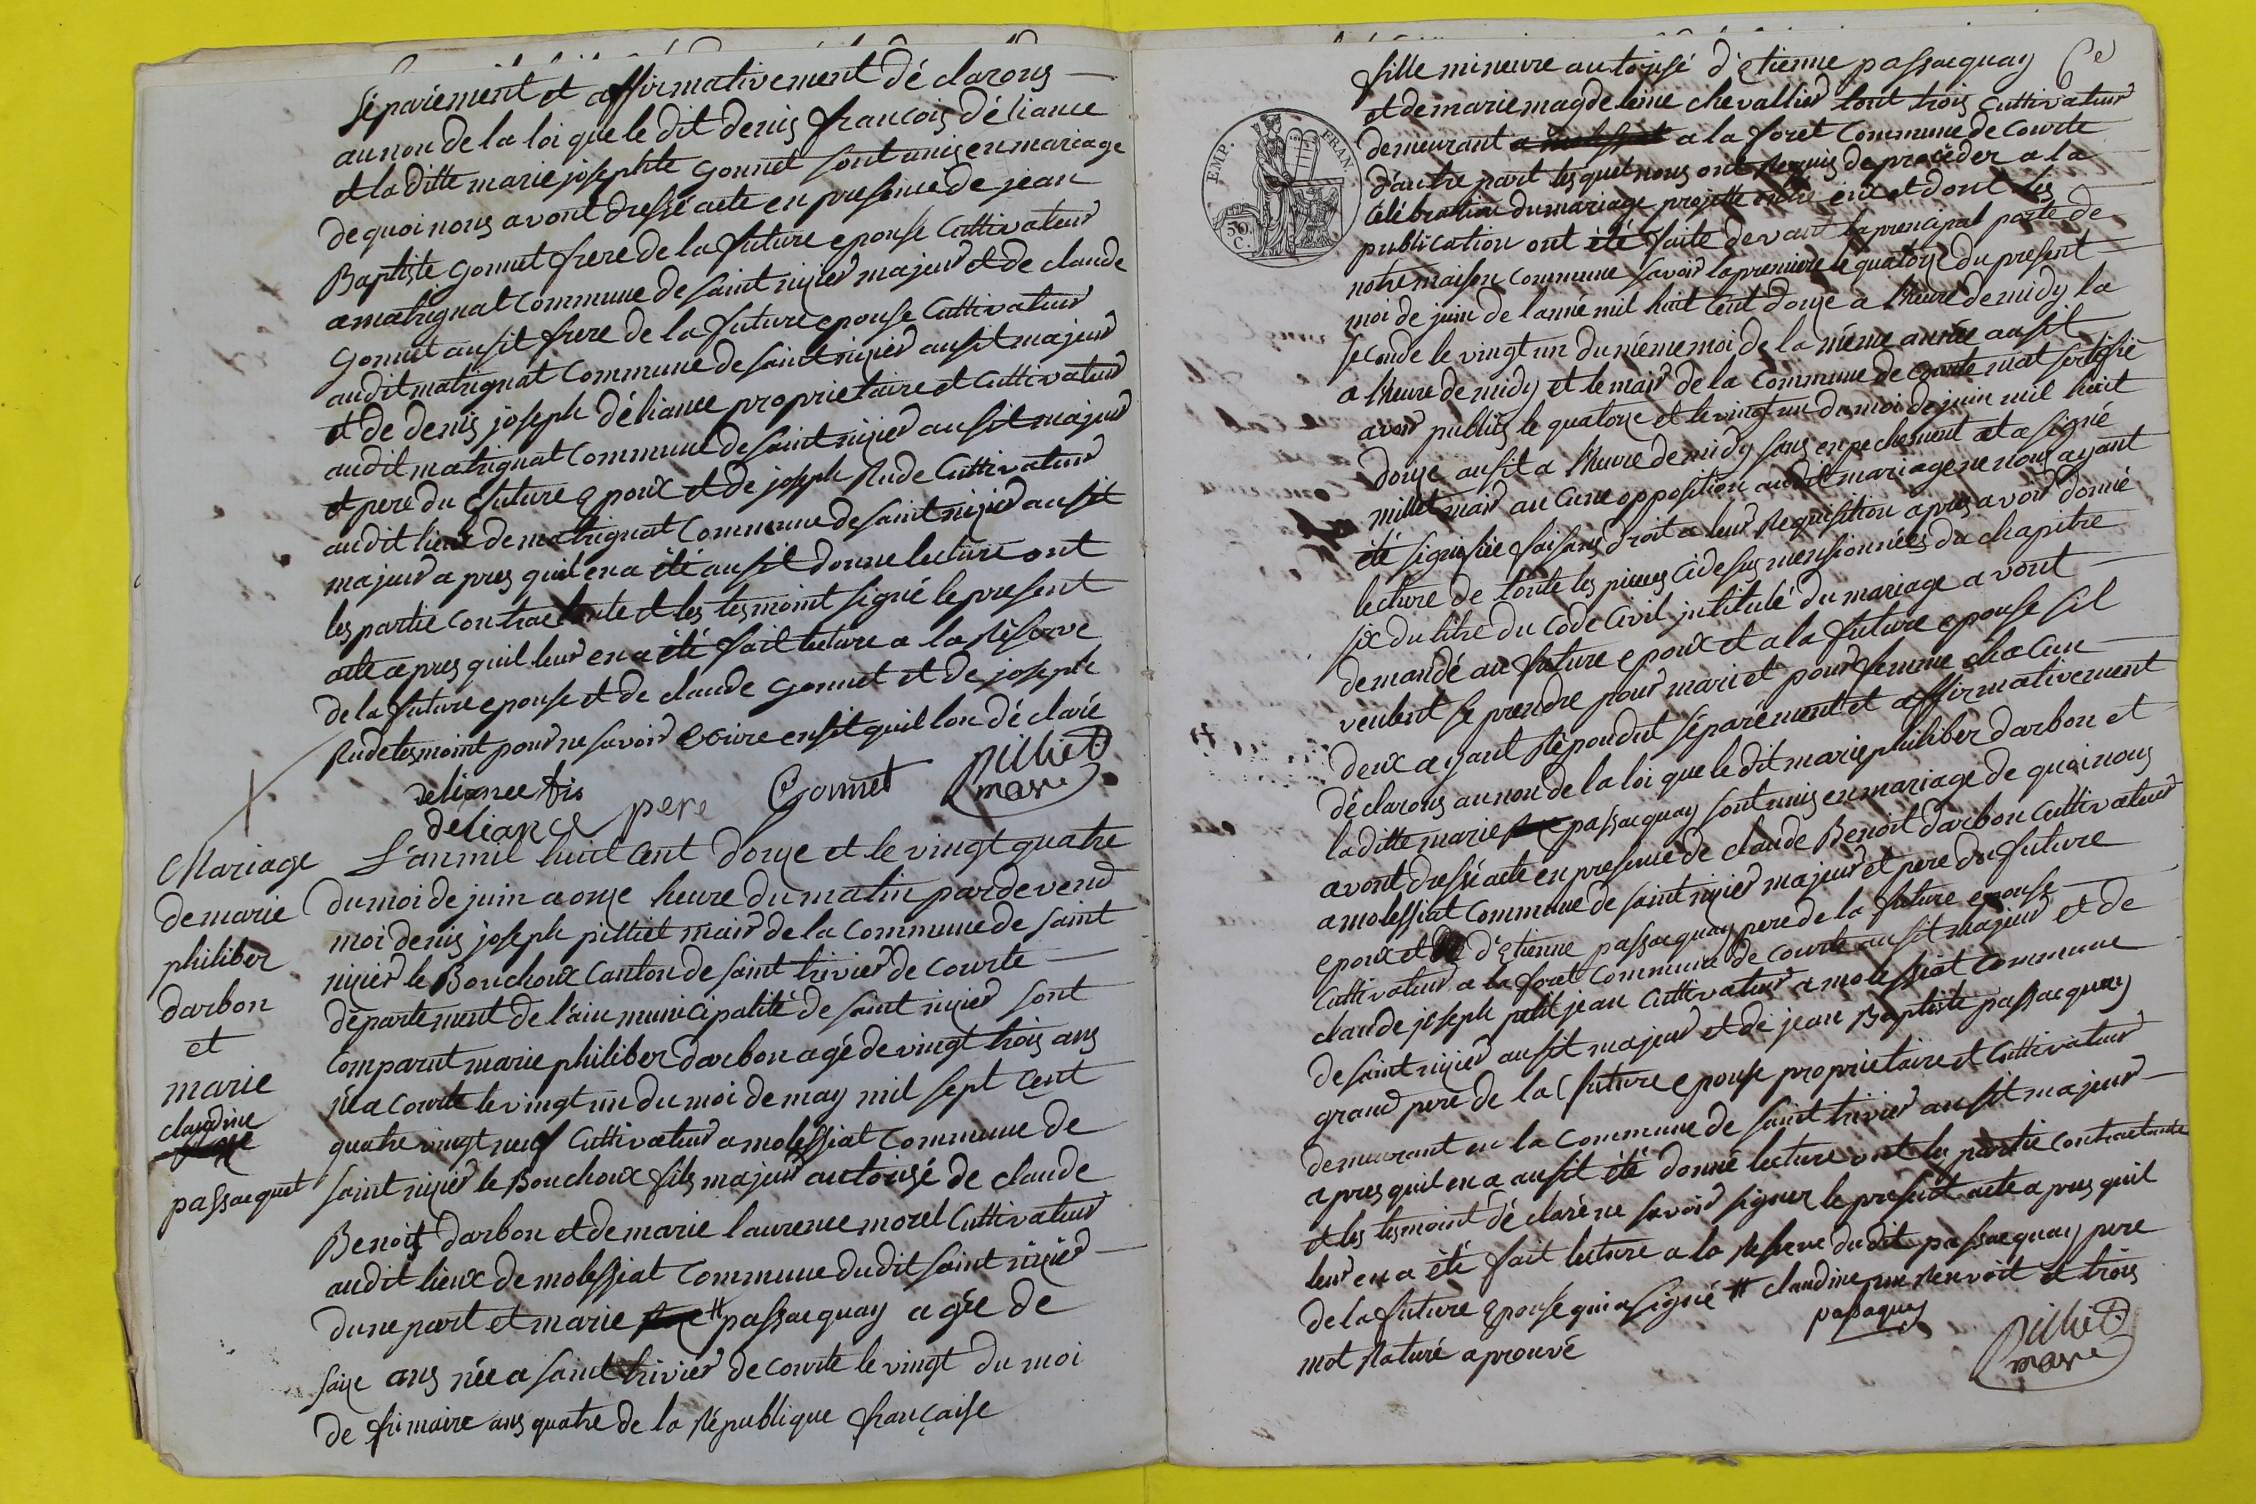 séparément et affirmativement déclarons
au non de la loi que le dit denis francois déliance
et la ditte marie josephte Gonnet sont unis en mariage
de quoi nous avont dressé acte en presence de jean
Baptiste Gonnet frere de la future epouse Cultivateur
a matrignat Commune de saint nizier majeur et de claude
Gonnet ausit frere de la future epouse Cultivateur
audit matrignat Commune de saint nizier ausit majeur
et de denis joseph déliance proprietaire et Cultivateur
audit matrignat Commune de saint nizier ausit majeur
et pere du future epoux et de joseph Rude Cultivateur
audit lieux de matrignat Commune de saint nizier ausit
majeur apres quil en a été ausit donne lecture ont
les partie Contractante et les tesmoint signé le present
acte apres quil leur en a été fait lecture a la Réserve
de la future epouse et de claude Gonnet et de joseph
Rude tesmoint pour ne savoir ecrire ensit quil lon déclaré
deliance fis
deliance pere Gonnet pilliet
mare
Mariage
de marie
philiber
darbon
et
marie
claudine
passacquet
L'an mil huit Cent douze et le vingt quatre
du moi de juin a onze heure du matin pardevend
moi denis joseph pilliet mair de la Commune de saint
nizier le Bouchoux Canton de saint trivier de Courte
département de l'ain municipalité de saint nizier sont
Comparut marie philiber darbon agé de vingt trois ans
né a Courte le vingt un du moi de may mil sept Cent
quatre vingt neuf Cultivateur a molessiat Commune de
saint nizier le Bouchoux fils majeur autorisé de claude
Benoit darbon et de marie laurence morel Cultivateur
audit lieux de molessiat Commune dudit saint nizier
dune part et marie # passacquay agée de
saize ans née a saint trivier de courte le vingt du moi
de frimaire ans quatre de la République française
6e
fille mineure autorisé d'Etienne passacquay
et de marie magdeleine chevallier tout trois Cultivateur
EMP. FRAN.
50. C.
demeurant a molessiat a la foret Commune de Courte
d'autre part lesquel nous ont Requis de procéder a la
Célébration du mariage projetté entre eux et dont les
publication ont été faite devant la prencipal porte de
notre maison Commune savoir la premiere le quatorze du present
moi de juin de lanné mil huit Cent douze a l'heure de midy la
seconde le vingt un du même moi de la même année ausit
a l'heure de midy et le mair de la Commune de Courte mat sertifié
avoir publiés le quatorze et le vingt un du moi de juin mil huit
douze ausit a l'heure de midy sans enpechement et a signé
millet mair aucune opposition audit mariage ne nous ayant
été signifiée faisans droit a leur Requisition apres avoir donné
lecture de toute les pieces cidesus mensionnées du chapitre
six du titre du Code Civil intitulé du mariage avont
demandé au future epoux et a la future epouse sil
veulent se prendre pour mari et pour femme chacun
deux ayant Répondut séparément et affirmativement
déclarons au non de la loi que le dit marie philiber darbon et
la ditte marie passacquay sont unis en mariage de quoi nous
avont dressé acte en presence de claude Benoit darbon Cultivateur
a molessiat Commune de saint nizier majeur et pere du future
epoux et d'Etienne passacquay pere de la future epouse
Cultivateur a la foret Commune de Courte ausit majeur et de
claude joseph petit jean Cultivateur a molessiat Commune
de saint nizier ausit majeur et de jean Baptiste passacquay
grand pere de la future epouse proprietaire et Cultivateur
demeurant en la Commune de saint trivier ausit majeur
apres quil en a ausit été donné lecture ont les partie Contractante
et les tesmoint déclaré ne savoir signer le present acte apres quil
leur en a été fait lecture a la Reserve dudit passacquay pere
de la future Epouse qui a signé # claudine pur Renvoit et trois
mot Raturé aprouvé
passaquay
pilliet
mare